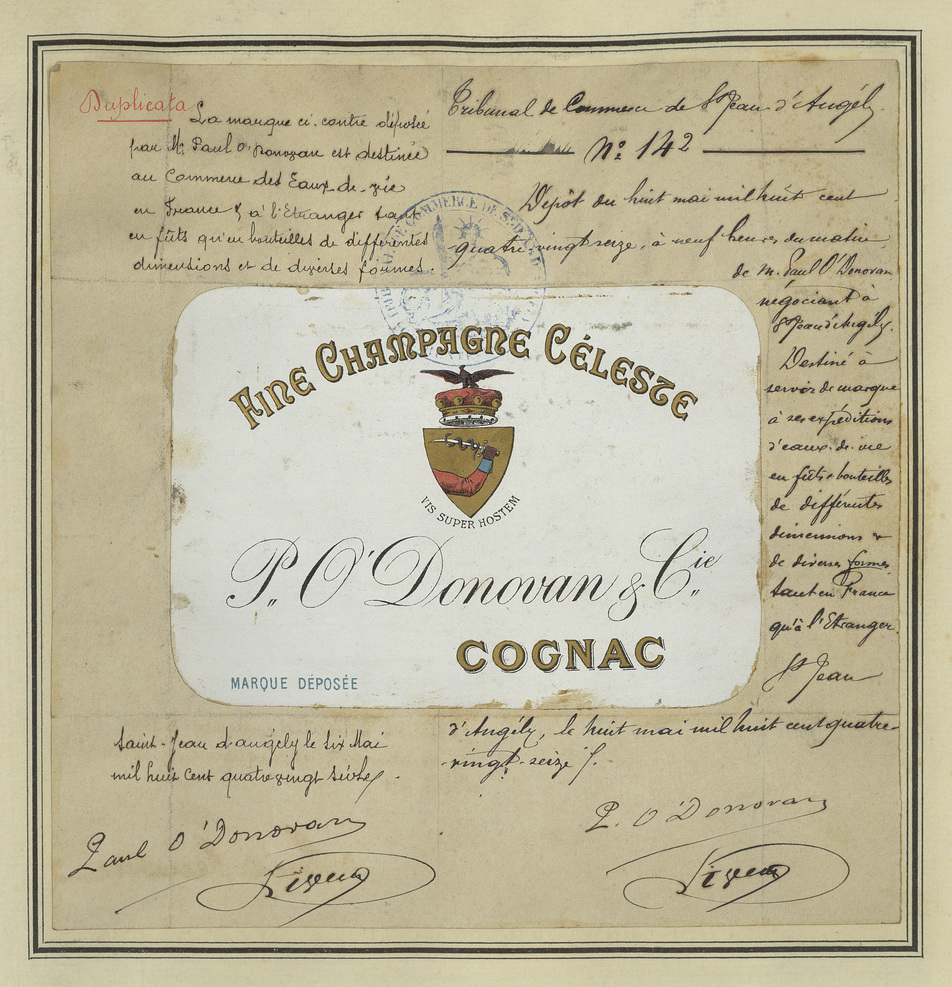 Duplicata
La marque ci-contre déposée
par Mr Paul O'Donovan est destinée
au Commerce des Eaux-de-vie
en France & à l'Etranger tant
en fûts qu'en bouteilles de différentes
dimensions et de diverses formes.
Tribunal de Commerce de St Jean d'Angély.
No 142
Dépôt du huit mai mil huit cent
quatre vingt seize, à neuf heures du matin
de M. Paul O'Donovan
négociant à
St Jean d'Angély.
Destiné à
servir de marque
à ses expéditions
d'eaux-de-vie
en fûts & bouteilles
de différentes
dimensions &
de diverses formes
tant en France
qu'à l'Etranger.
St Jean
d'Angély, le huit mai mil huit cent quatre-
vingt-seize
FINE CHAMPAGNE CÉLESTE
VIS SUPER HOSTEM
P. O'Donovan & Cie
COGNAC
MARQUE DÉPOSÉE
Saint-Jean d'angély le six Mai
mil huit cent quatre vingt seize
Paul O'Donovan
P. O'Donovan